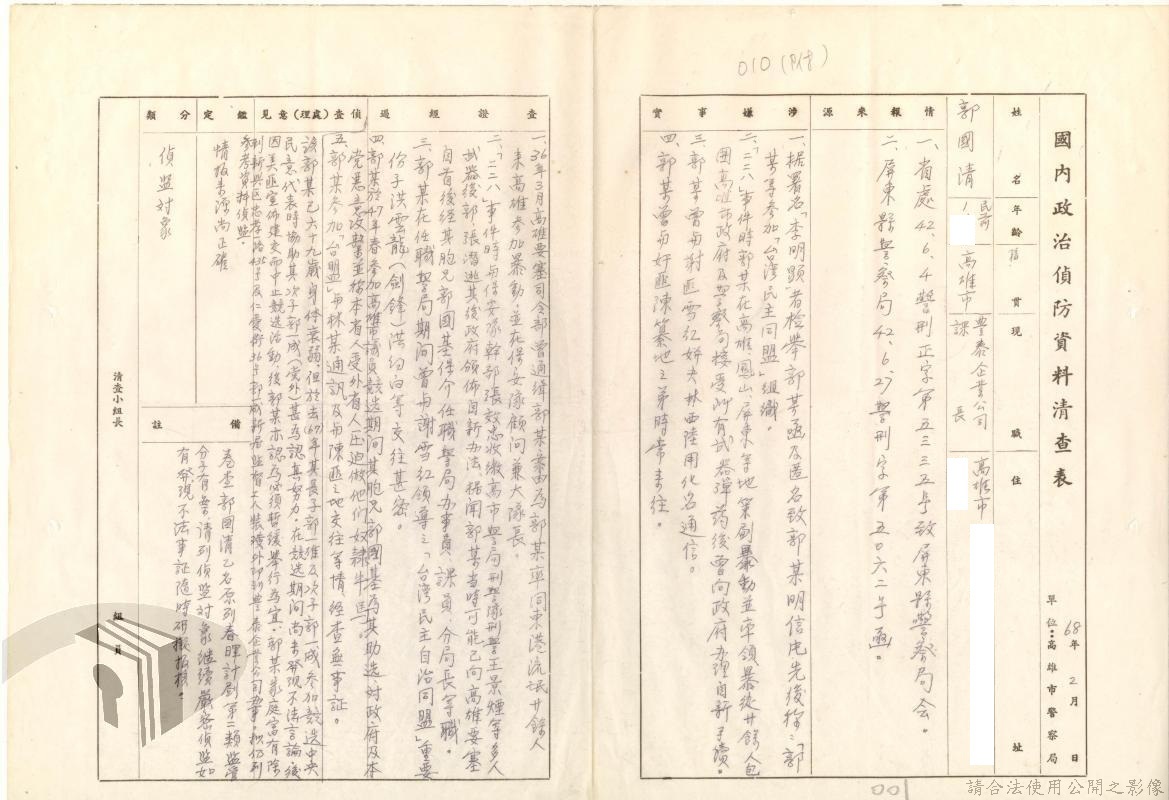 010(附)
國內政治偵防資料清查表
單位:高雄市警察局
68年2月 日
姓名
年齡
籍貫
現職
住址
郭國清
民前
1.
高雄市
豐泰企業公司
課 長
高雄市
情報來源
一、省處42.6.4警刑正字第五三三五号致屏東縣警察局會。
二、屏東縣警察局42.6.27警刑字第五〇六二号函。
涉嫌事實
一、據署名「李明顯」者檢舉郭某函及匿名致郭某明信片先後稱:「郭
某等參加「台灣民主同盟」組織。
二、「二二八」事件時郭某在高雄、鳳山、屏東等地策劃暴動並率領暴徒廿餘人包
圍高雄市政府及警察局接受所有武器彈药後曾向政府办理自新手續。
三、郭某曾與謝匪雪红姘夫林西陸用化名通信。
四、郭某曾與奸匪陳纂地之弟時常来往。
查證經過
一、36年3月高雄要塞司令部曾通缉郭某案由為郭某率同東港流氓廿餘人
来高雄參加暴動,並在保安隊顧問兼大隊長。
二、「二二八」事件時與保安隊幹部張啟忠收缴高市警局刑警隊刑警王景煙等多人
武器後郭、張潜逃其後政府頒佈自新办法据聞郭某当時可能已向高雄要塞
自首後經其胞兄郭國基保介任職警局办事員、課員、分局長等職。
三、郭某在任職警局期间曾與謝雪红領導之「台湾民主自治同盟」重要
份子洪雲龍(劍鋒)洪約白等交往甚密。
四、郭某於47年春參加高雄市議員競选期间其胞兄郭國基為其助选,对政府及本
党惡意攻擊並稱本省人受外省人压迫做他們奴隸牛馬。
五、郭某參加「台盟」與林某通訊及與陳匪之地交往等情,經查無事証。
偵查(處理)意見
該郭某已六十九歲身体衰弱,但於去(67)年其長子郭一維及次子郭一成參加競选中央
民意代表時協助其次子郭一成(党外)甚為認真努力。在競选期间尚未發現不法言論後
因美匪宣佈建交而中止競选活動,後郭某亦認為必須暫缓舉行為宜,郭某家庭富有除
參考資料偵監。
鑑定
情报来源尚正確
分類
偵監对象
備註
卷查郭國清乙名原列春暉計劃第二類監管
分子有案請列偵監对象继續嚴密偵監如
有發現不法事証隨時研擬报核。
清查小組長
組員
001
請合法使用公開之影像